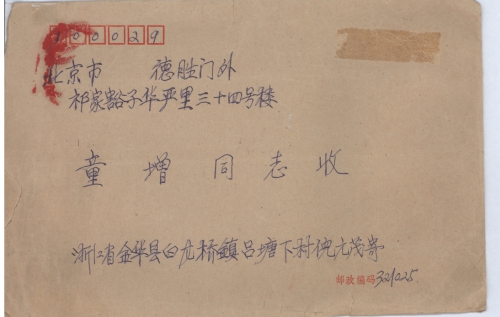 100029
北京市 德胜门外
祁家豁子华严里三十四号楼
童增同志收
浙江省金华县白龙桥镇吕塘下村倪允茂寄
邮政编码321025